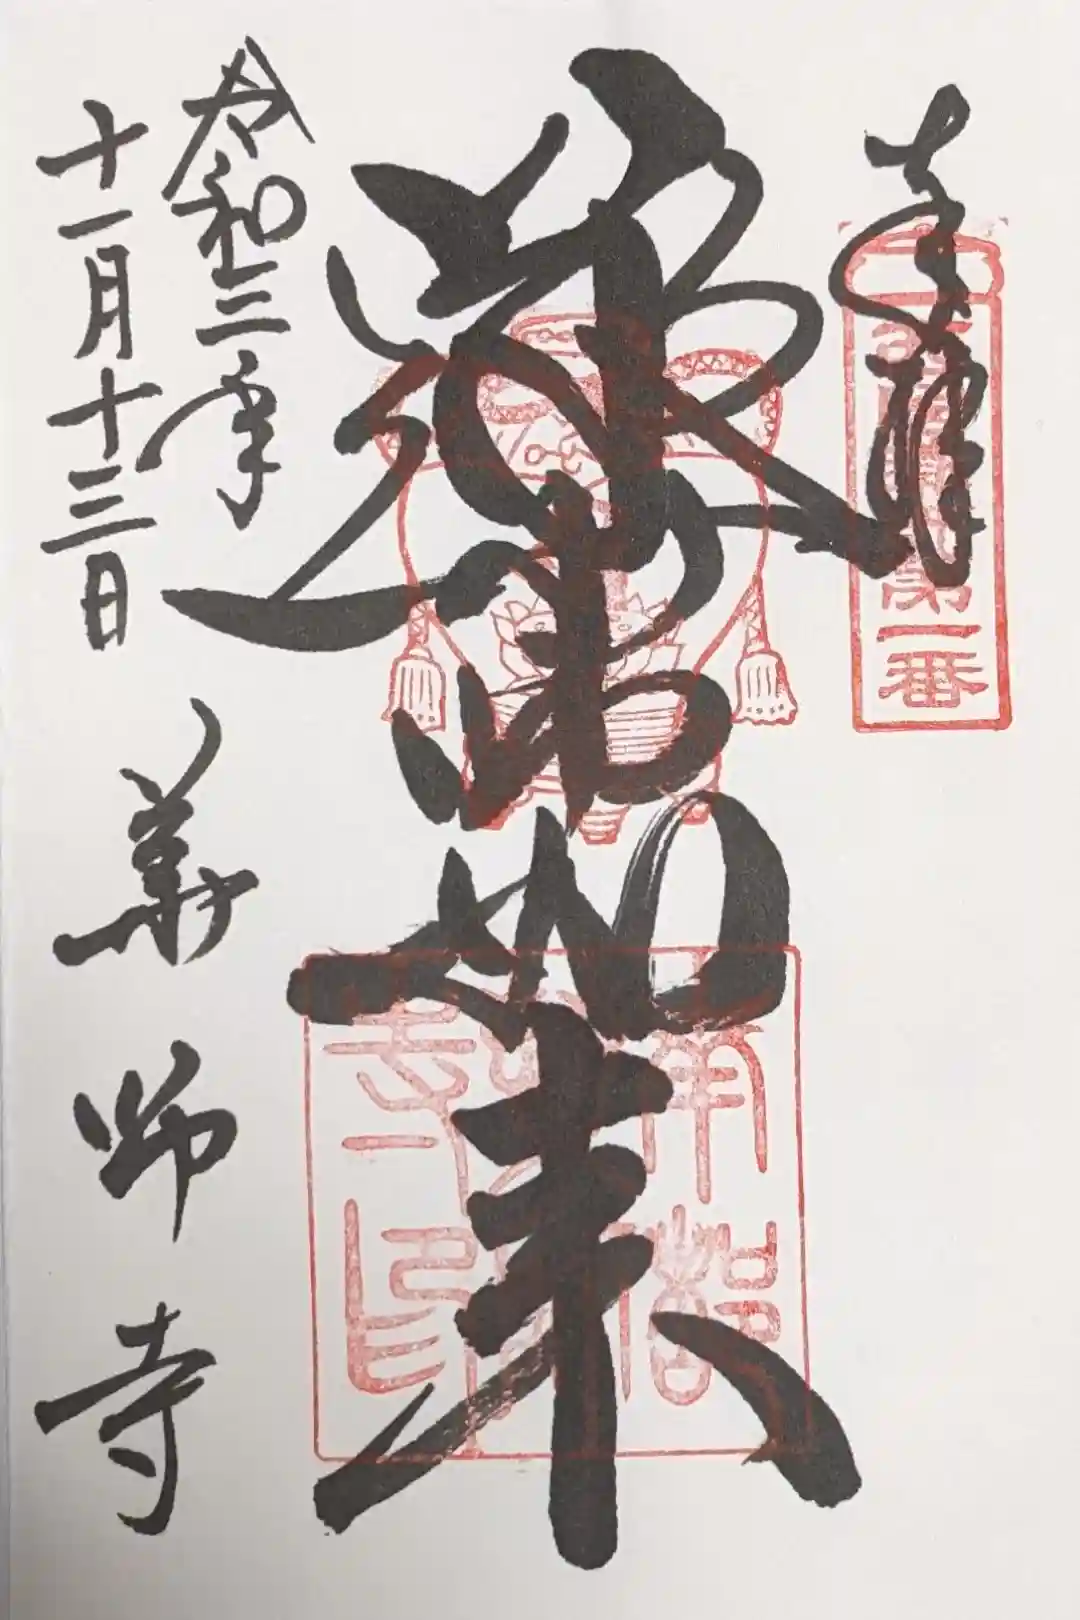 奉拝
第一番
薬師如来
南都
令和三年
十一月十三日
薬師寺